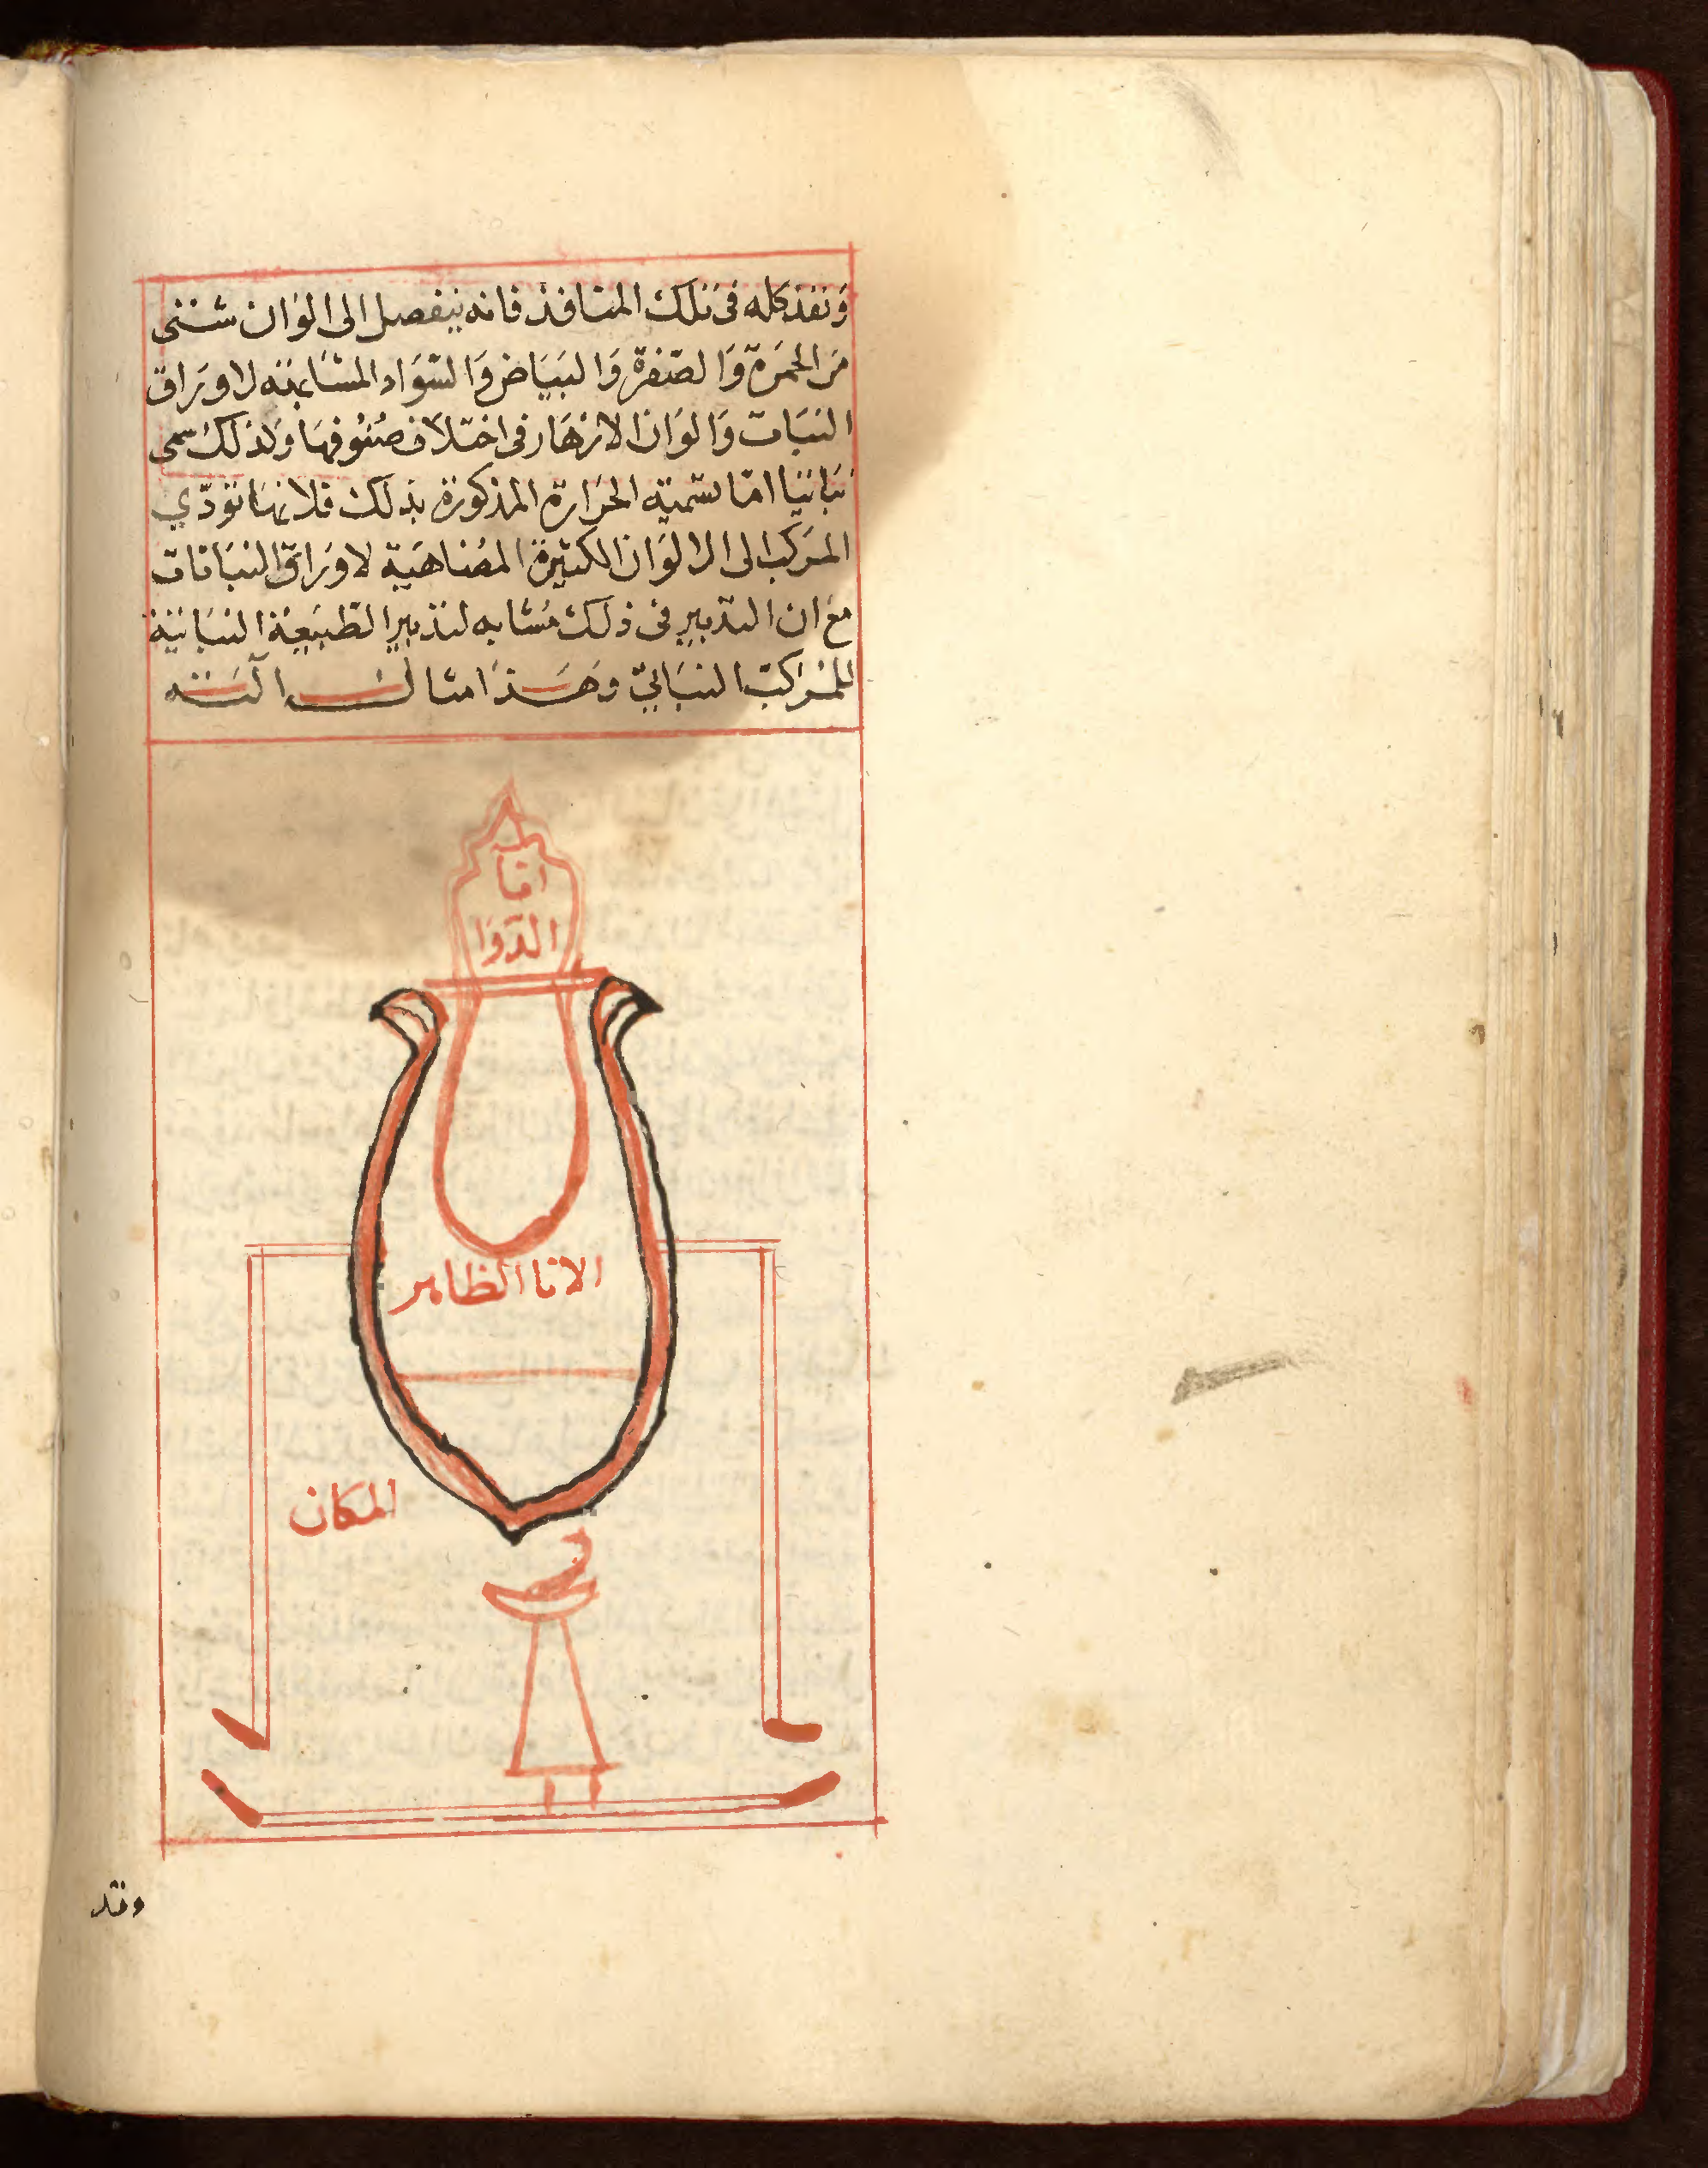 وَنفذ كله فى تلك المنافذ فانه ينفصل الى الوَان شتى
مَن الحمَرة وَالصّفرة وَالبَيَاض وَالسّوَاد المشابهة لاورَاق
النبَات وَالوَان الازهَار فى اختلاف صُنُوفهَا وَلذلك سمى
نبَاتيا امّا تسمية الحرَارة المذكورة بذلك فلانهَا تودّي
المرَكب الى الالوَان الكثيرة المضاهيَة لاورَاق النبَاتات
معَ ان التدبير فى ذلك مُشابه لتدبير الطّبيعَة النبَاتية
للمُرَكّب النبَاتيّ وَهَذَا مثال الته
انا
الدّوَا
الانا الظاهر
المكان
وقد